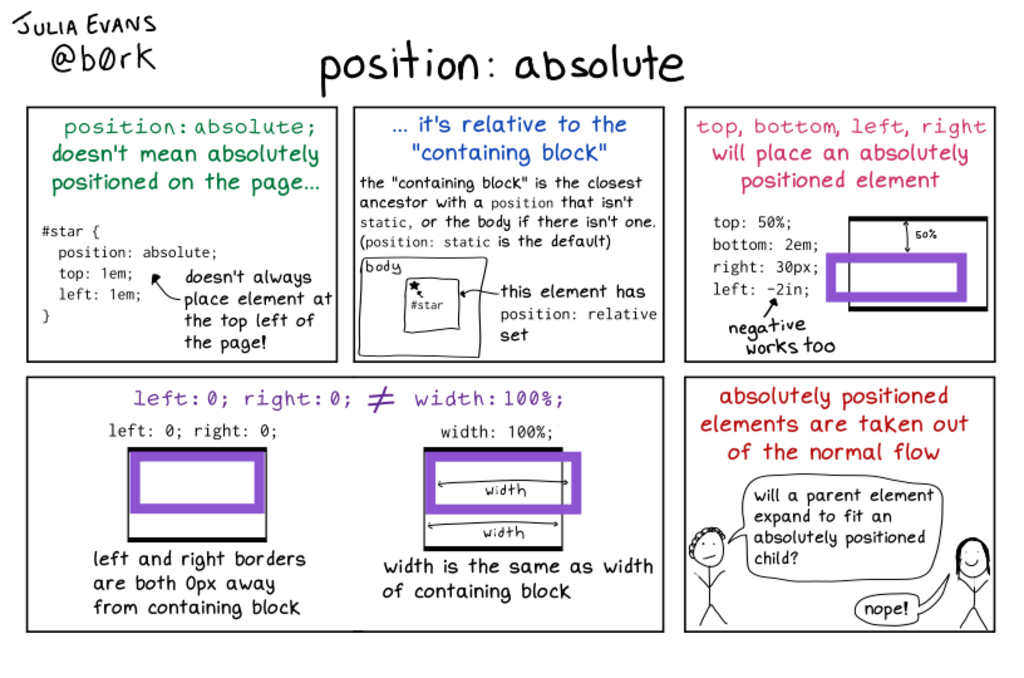 JULIA EVANS
@b0rk
position: absolute
position: absolute;
doesn't mean absolutely
positioned on the page...
#star {
position: absolute;
top: 1em;
left: 1em;
}
doesn't always
place element at
the top left of
the page!
... it's relative to the
"containing block"
the "containing block" is the closest
ancestor with a position that isn't
static, or the body if there isn't one.
(position: static is the default)
body
#star
this element has
position: relative
set
top, bottom, left, right
will place an absolutely
positioned element
top: 50%;
bottom: 2em;
right: 30px;
left: -2in;
negative
works too
50%
left: 0; right: 0; ≠ width: 100%;
left: 0; right: 0;
left and right borders
are both 0px away
from containing block
width: 100%;
width
width
width is the same as width
of containing block
absolutely positioned
elements are taken out
of the normal flow
will a parent element
expand to fit an
absolutely positioned
child?
nope!